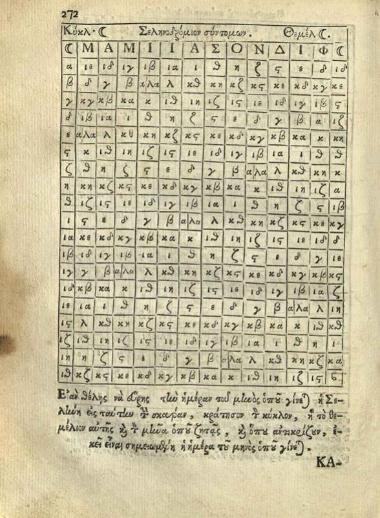 272
Κύκλ· ☾ Σεληνοδρόμιον σύντομον. Θεμέλ ☾.
☾ Μ Α Μ Ι Ι Α Σ Ο Ν Δ Ι Φ ☾
α ιε ιδ ιγ ιβ ια ι θ η ζ ς ε δ ιδ
β δ γ β αλα λ κθ κη κζ κς κε κδ κγ κε
γ κγ κβ κα κ ιθ ιη ιζ ις ιε ιδ ιγ ιβ ς
δ ιβ ια ι θ η ζ ς ε δ γ β α ιζ
ε αλα λ κθ κη κζ κς κε κδ κγ κβ κα κ κη
ς κ ιθ ιη ιζ ις ιε ιδ ιγ ιβ ια ι θ θ
ζ θ η ζ ς ε δ γ β αλα λ κθ κη κ
η κη κζ κς κε κδ κγ κβ κα κ ιθ ιη ιζ α
θ ιζ ις ιε ιδ ιγ ιβ ια ι θ η ζ ς ιβ
ι ς ε δ γ β αλα λ κθ κη κζ κς κε κγ
ια κε κδ κγ κβ κα κ ιθ ιη ιζ ις ιε ιδ δ
ιβ ιδ ιγ ιβ ια ι θ η ζ ς ε δ γ ιε
ιγ γ β αλα λ κθ κη κζ κς κε κδ κγ κβ κς
ιδ κβ κα κ ιθ ιη ιζ ις ιε ιδ ιγ ιβ ια ζ
ιε ια ι θ η ζ ς ε δ γ β αλα λ ιη
ις λ κθ κη κζ κς κε κδ κγ κβ κα κ ιθ κθ
ιζ ιθ ιη ιζ ις ιε ιδ ιγ ιβ ια ι θ η ι
ιη η ζ ς ε δ γ β αλα λ κθ κη κζ κα
ιθ κζ κς κε κδ κγ κβ κα κ ιθ ιη ιζ ις
Εἀν θέλῃς νὰ εὕρῃς τὴν ἡμέραν τοῦ μηνὸς ὁποῦ γίνε) ἡ Σε-
λήνη εἰς ταύτην τ σκάφαν, κράτησον τ κύκλον, ἢ τὸ θε-
μέλιον αὐτῆς κ τ μῆνα ὁποῦ ζητᾷς, κ ὁποῦ ἀντικρίζουν, ἐ-
κεῖ εἶναι σημειωμένη ἡ ἡμέρα τοῦ μηνὸς ὁποῦ γίνε).
ΚΑ-